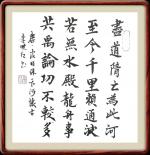 盡道隋亡為此河
至今千里賴通波
若無水殿龍舟事
共禹論功不較多
唐皮日休汴河懷古